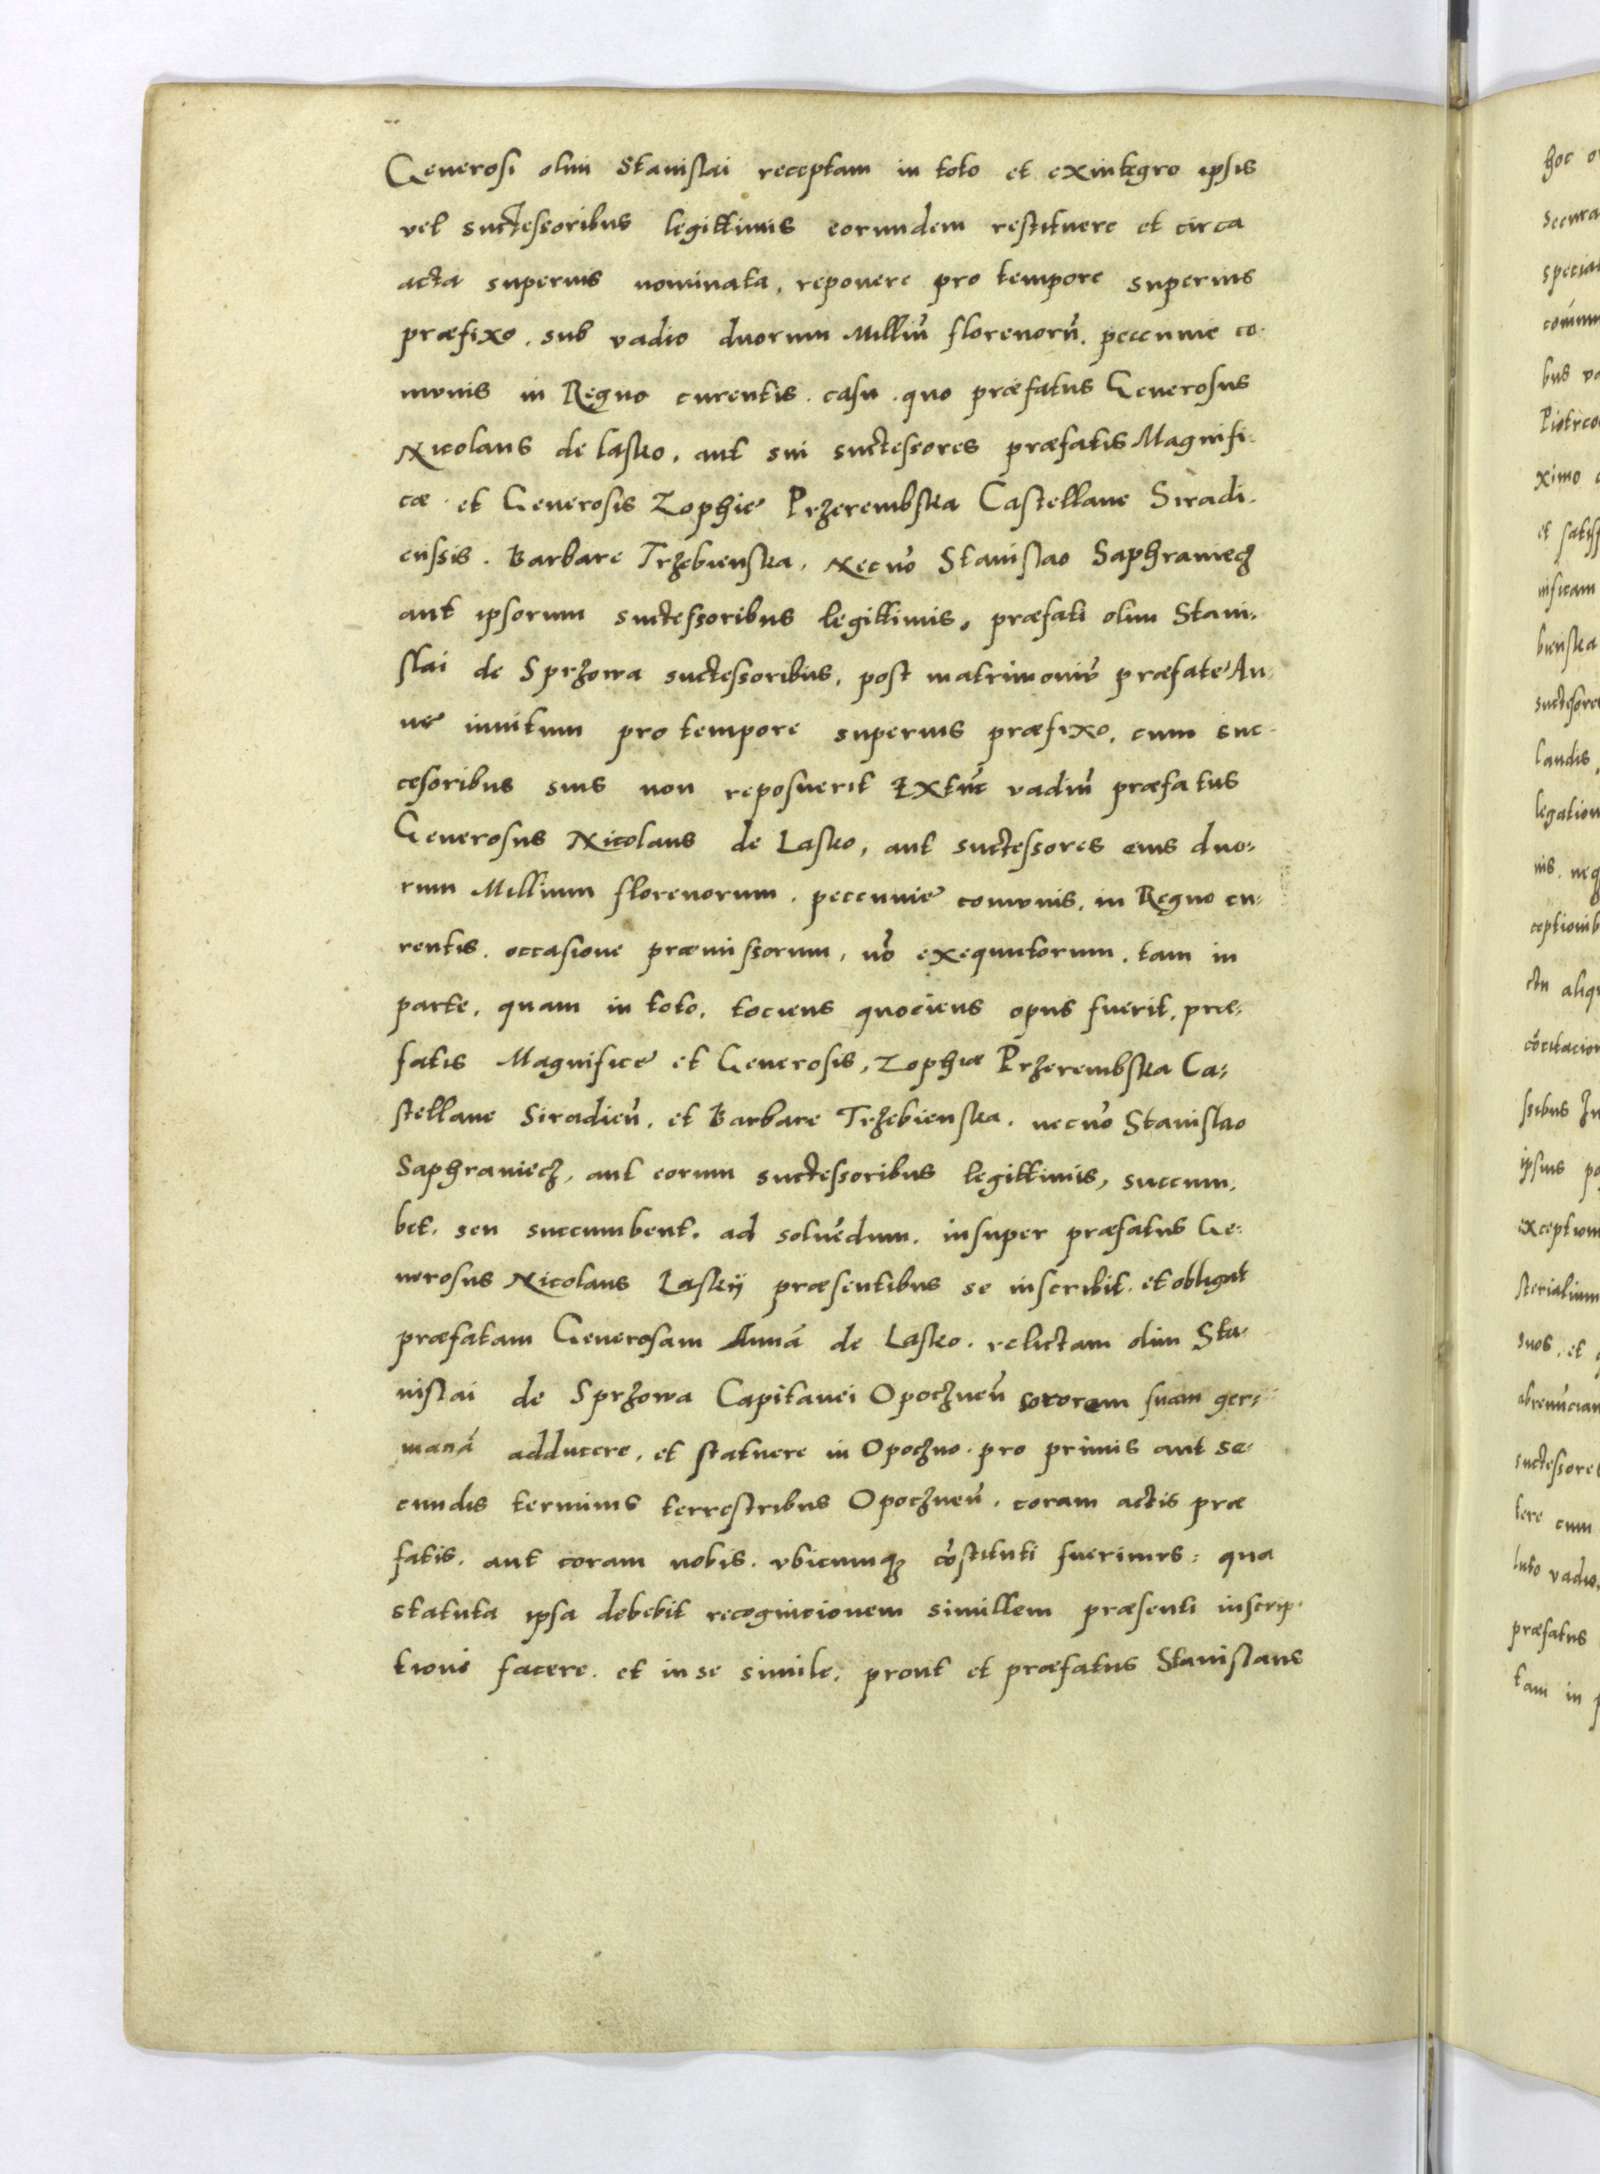 Generosi olim Stanislai receptam in toto et exintegro ipsis
vel suctessoribus legittimis eorundem restituere et circa
acta superius nominata, reponere pro tempore superius
præfixo. sub vadio duorum Milliũ florenorũ. peccunie co-
munis in Regno curentis. casu. quo præfatus Generosus
Nicolaus de lasko, aut sui suctessores præfatis Magnifi-
cæ et Generosis Zophie Przerembska Castellane Siradi-
enssis. Barbare Trzebienska, Necnõ Stanislao Saphraniecz
aut ipsorum suctessoribus legittimis, præfati olim Stani-
slai de Sprzowa suctessoribus, post matrimoniũ præfate An-
ne initum pro tempore superius præfixo, cum suc-
cesoribus suis non reposuerit Extũc vadiũ præfatus
Generosus Nicolaus de Lasko, aut suctessores eius duo-
rum Millium florenorum. peccunie comunis, in Regno cu-
rentis. occasione præmissorum, nõ exequutorum, tam in
parte, quam in toto, tociens quociens opus fuerit, præ-
fatis Magnifice et Generosis, Zophiæ Przerembska Ca-
stellane Siradieñ, et Barbare Trzebienska, necnõ Stanislao
Saphraniecz, aut eorum suctessoribus legittimis, succum-
bet, seu succumbent, ad soluẽdum. insuper præfatus Ge-
nerosus Nicolaus Laskij præsentibus se inscribit. et obligat
præfatam Generosam Annã de Lasko. relictam olim Sta-
nislai de Sprzowa Capitanei Opoczneñ sororem suam ger-
manã adducere, et statuere in Opoczno. pro primis aut se-
cundis terminis terrestribus Opoczneñ, coram actis præ
fatis, aut coram nobis. vbicumqz cõstituti fuerimus: qua
statuta ipsa debebit recognicionem simillem præsenti inscrip-
tioni facere. et in se simile, prout et præfatus Stanislaus